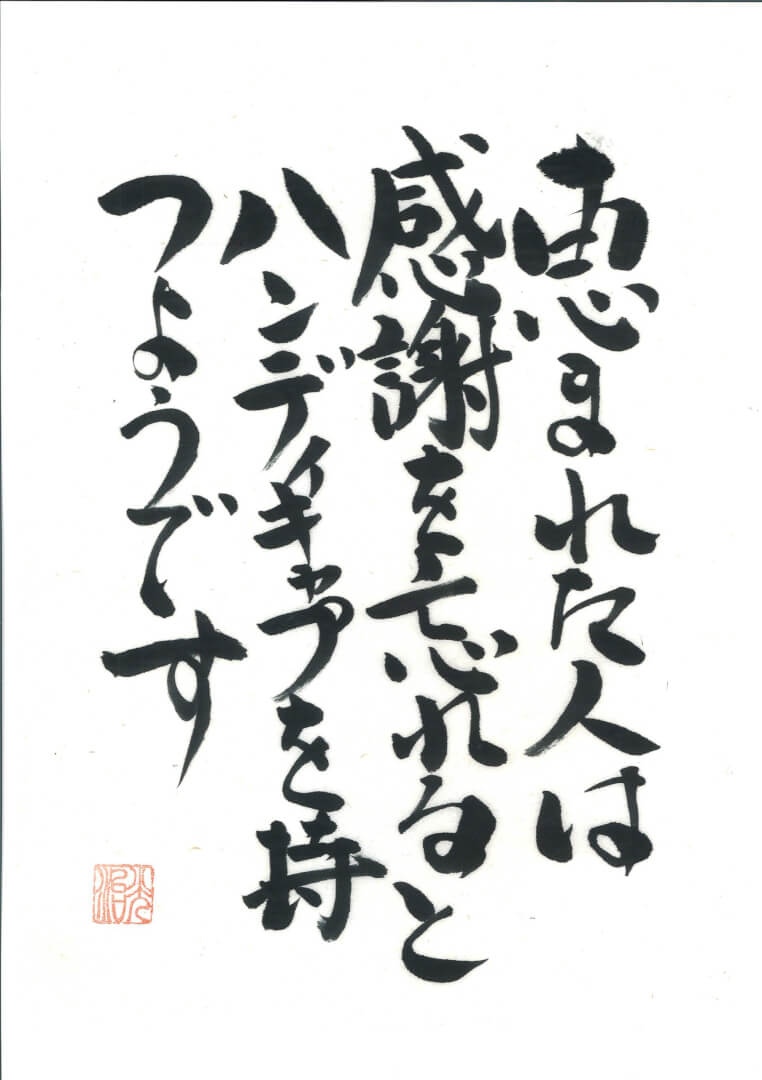 恵まれた人は
感謝を忘れると
ハンディキャプを持
つようです